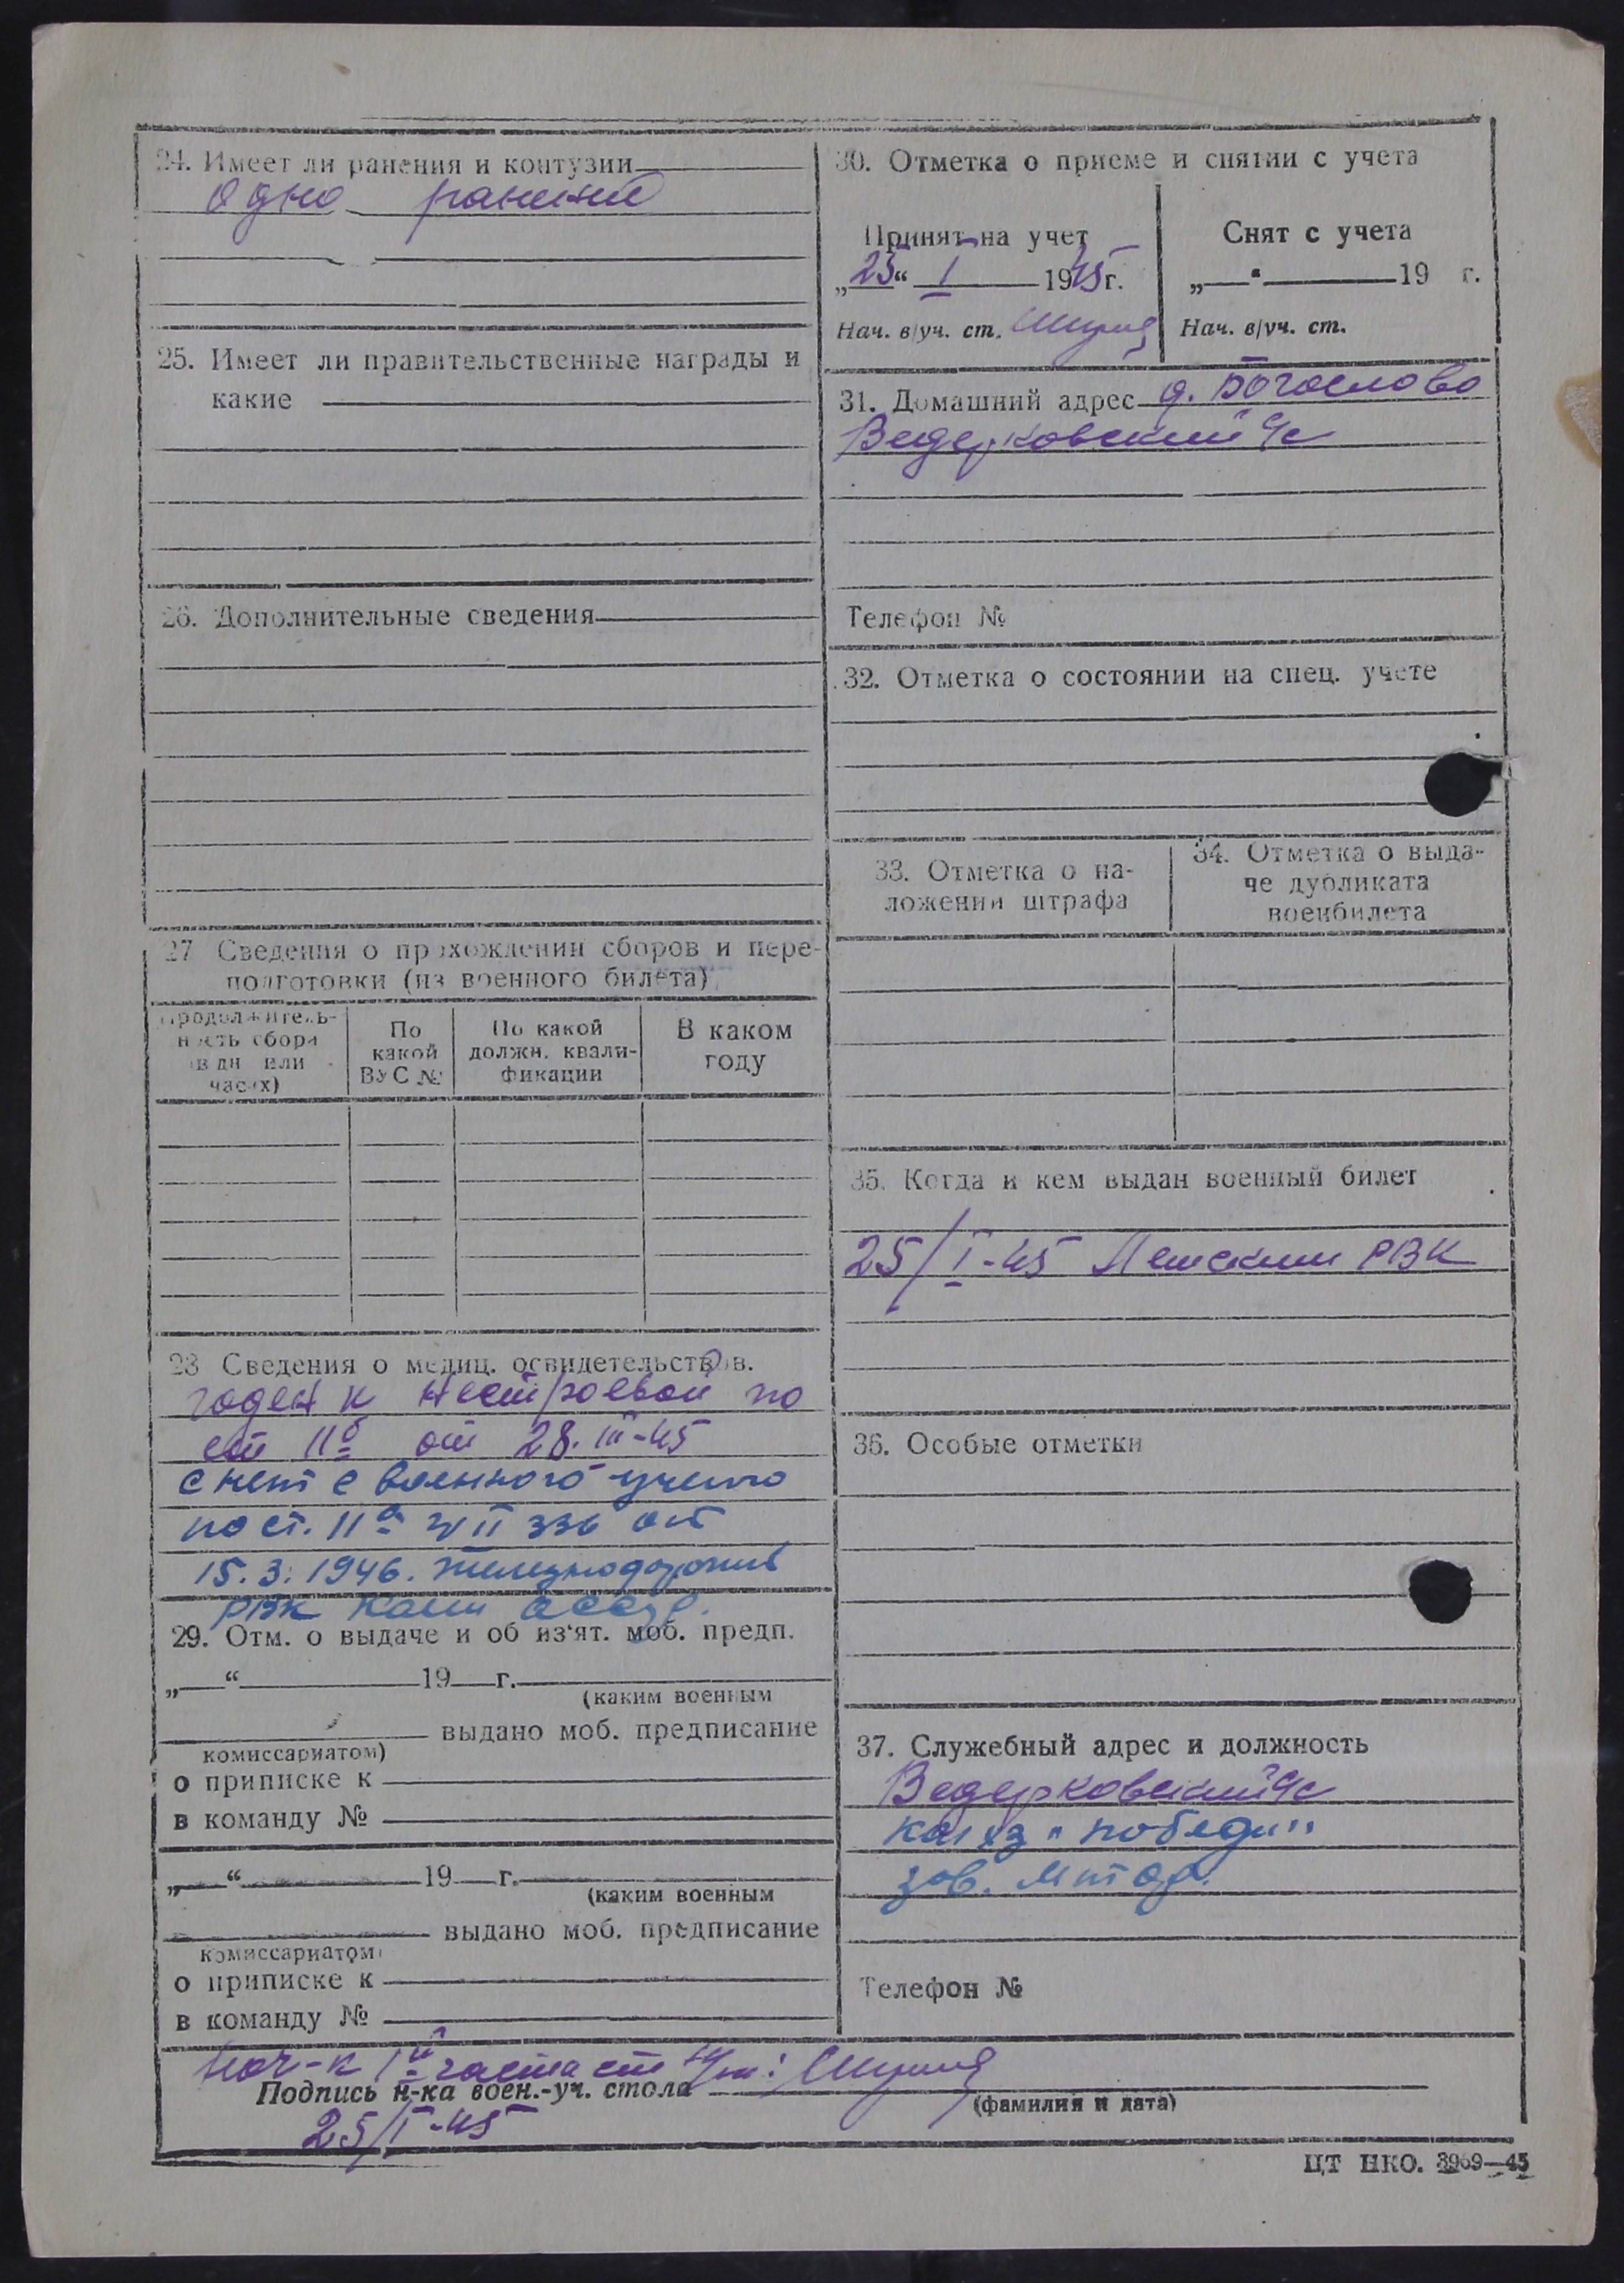 24. Имеет ли ранения и контузии
одно ранение
25. Имеет ли правительственные награды и
какие
26. Дополнительные сведения
27 Сведения о прохождении сборов и пере-
подготовки (из военного билета)
Продолжитель-
ность сбора
(в дн или
часах)
По
какой
ВУС №
По какой
должн. квали-
фикации
В каком
году
28 Сведения о медиц. освидетельствов.
годен к нестроевой по
ст IIб от 28. III-45
снят с военного учета
по ст. IIа 336 от
15.3.1946. Железнодорожн
РВК
29. Отм. о выдаче и об из‘ят. моб. предп.
„ “ 19 г.
(каким военным
выдано моб. предписание
комиссариатом)
о приписке к
в команду №
„ “ 19 г.
(каким военным
выдано моб. предписание
комиссариатом)
о приписке к
в команду №
30. Отметка о приеме и снятии с учета
Принят на учет
„25“ I 1945г.
Нач. в/уч. ст.
Снят с учета
„ “ 19 г.
Нач. в/уч. ст.
31. Домашний адрес д. Богослово
Ведерковский с/с
Телефон №
32. Отметка о состоянии на спец. учете
33. Отметка о на-
ложении штрафа
34. Отметка о выда-
че дубликата
военбилета
35. Когда и кем выдан военный билет
25/I-45 РВК
36. Особые отметки
37. Служебный адрес и должность
Ведерковский с/с
колхз "победа"
зав.
Телефон №
Нач-к 1й части ст
Подпись н-ка воен.-уч. стола
(фамилия и дата)
25/I-45
ЦТ НКО. 3969—45